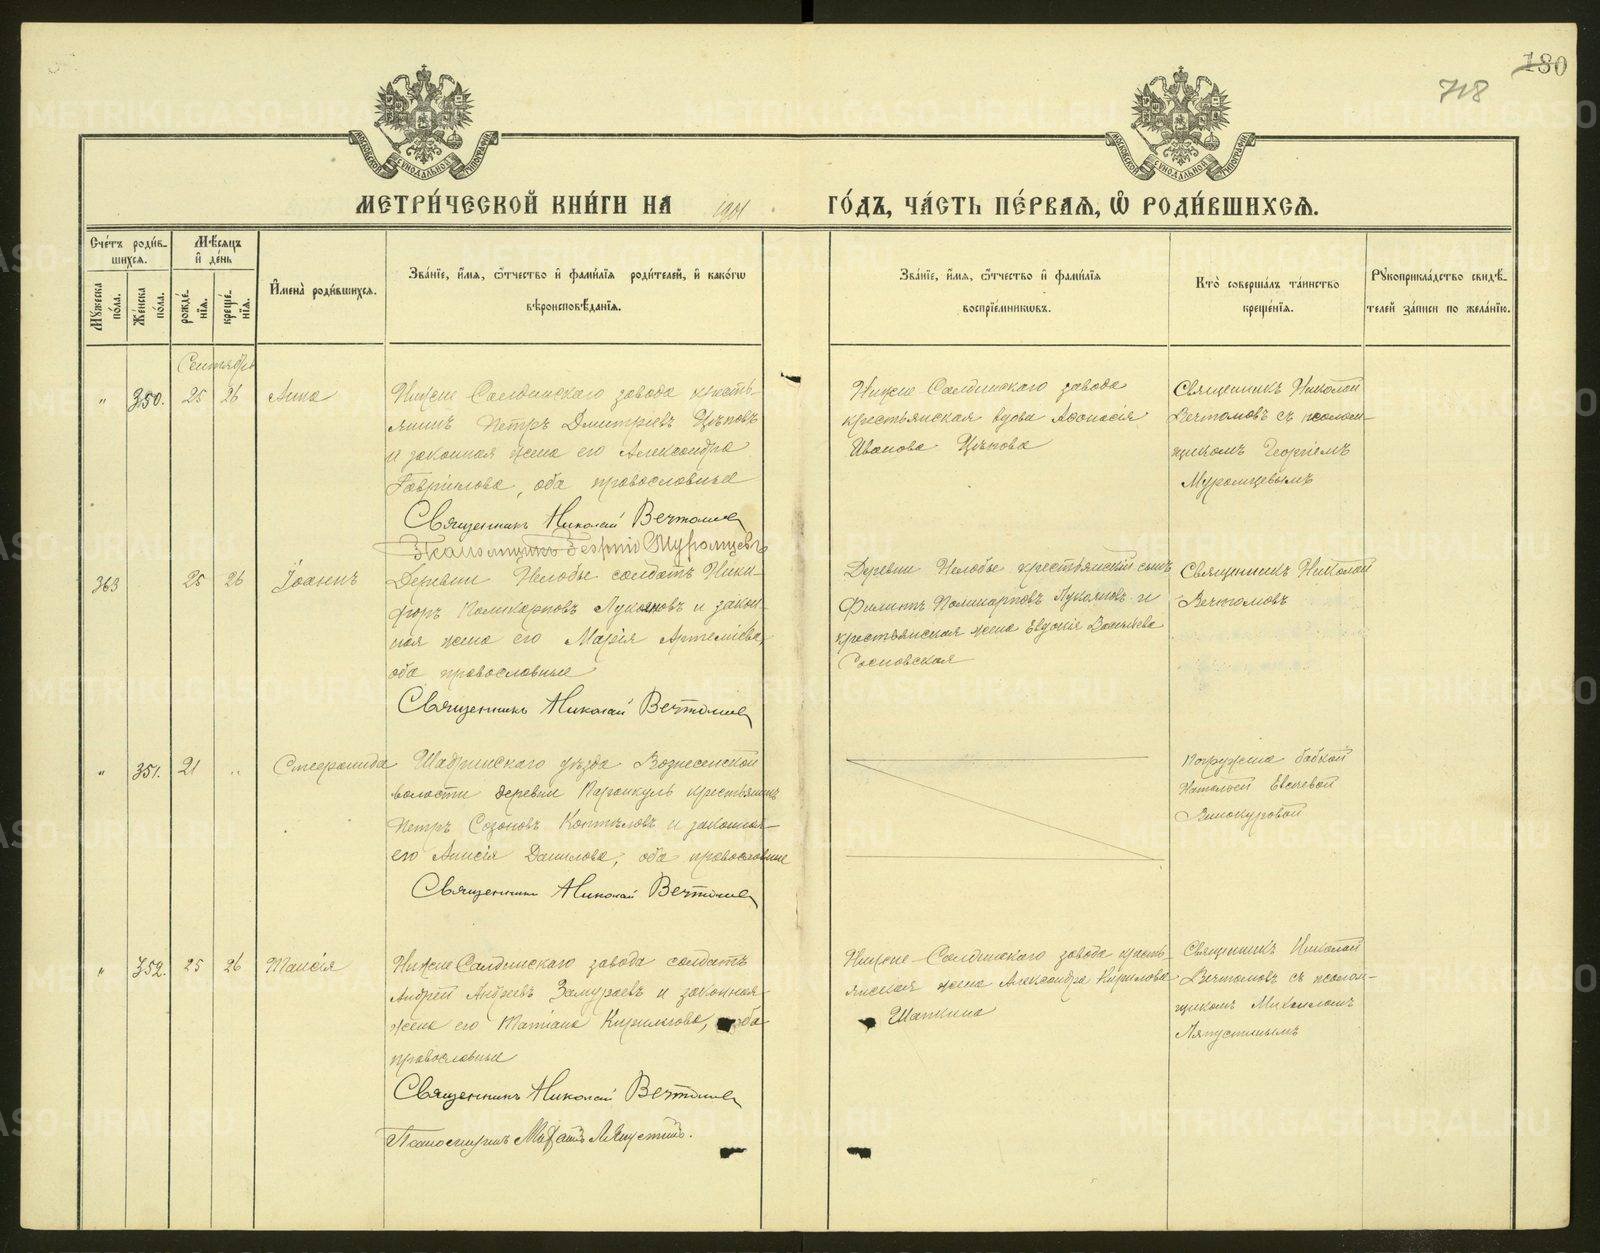 130
718
МОСКОВСКОЙ СѴНОДАЛЬНОЙ ТИПОГРАФІИ
МОСКОВСКОЙ СѴНОДАЛЬНОЙ ТИПОГРАФІИ
МЕТРИ́ЧЕСКОЙ КНИ́ГИ НА 1901 ГО́ДЪ, ЧА́СТЬ ПЕ́РВАѦ, Ѿ РОДИ́ВШИХСѦ.
Сче́тъ роди́в-
шихсѧ.
Мꙋ́жеска по́ла.
Же́нска по́ла.
Мѣ́сѧцъ и҆ де́нь
рожде́-
нїѧ.
креще́-
нїѧ.
И҆мена̀ роди́вшихсѧ.
Зва́нїе, и҆́мѧ, ѻ҆́тчество и҆ фами́лїѧ роди́телей, и҆ како́гѡ
вѣроисповѣ́данїѧ.
Зва́нїе, и҆́мѧ, ѻ҆́тчество и҆ фами́лїѧ
воспрїе́мникѡвъ.
Кто̀ соверша́лъ та́инство
креще́нїѧ.
Рꙋкоприкла́дство свидѣ́-
телей за́писи по жела́нїю.
Сентябрь
" 350. 25 26 Анна
Нижне Салдинскаго завода кресть-
янинъ Петръ Дмитріевъ Цѣповъ
и законная жена его Александра
Гавріилова, оба православные
Священникъ Николай Вечтомов
Псаломщикъ Георгій Муромцевъ
Нижне Салдинскаго завода
крестьянская вдова Афанасія
Иванова Цѣпова
Священникъ Николай
Вечтомовъ съ псалом-
щикомъ Георгіемъ
Муромцевымъ
363 25 26 Іоаннъ
Деревни Нелобы солдатъ Ники-
форъ Поликарповъ Лукояновъ и закон-
ная жена его Марія Артеміева,
оба православные
Священникъ Николай Вечтомов
Деревни Нелобы крестьянскій сынъ
Филиппъ Поликарповъ Лукояновъ и
крестьянская жена Евдокія Васильева
Сосновская
Священникъ Николай
Вечтомовъ
" 351. 21 " Стефанида
Шадринскаго уѣзда Вознесенской
волости деревни Каракуль крестьянинъ
Петръ Созоновъ Коптѣловъ и законная
его Анисія Данилова, оба православные
Священникъ Николай Вечтомов
Погружена бабкой
Наталіей Евсіевой
Винокуровой
" 352. 25 26 Таисія
Нижне Салдинскаго завода солдатъ
Андрей Андреевъ Замураевъ и законная
жена его Татіана Кириллова, оба
православные
Священникъ Николай Вечтомов
Псаломщикъ Михаилъ Ляпустинъ.
Нижне-Салдинскаго завода кресть-
янская жена Александра Кирилова
Шапкина
Священникъ Николай
Вечтомовъ съ псалом-
щикомъ Михаиломъ
Ляпустинымъ
METRIKI.GASO-URAL.RU